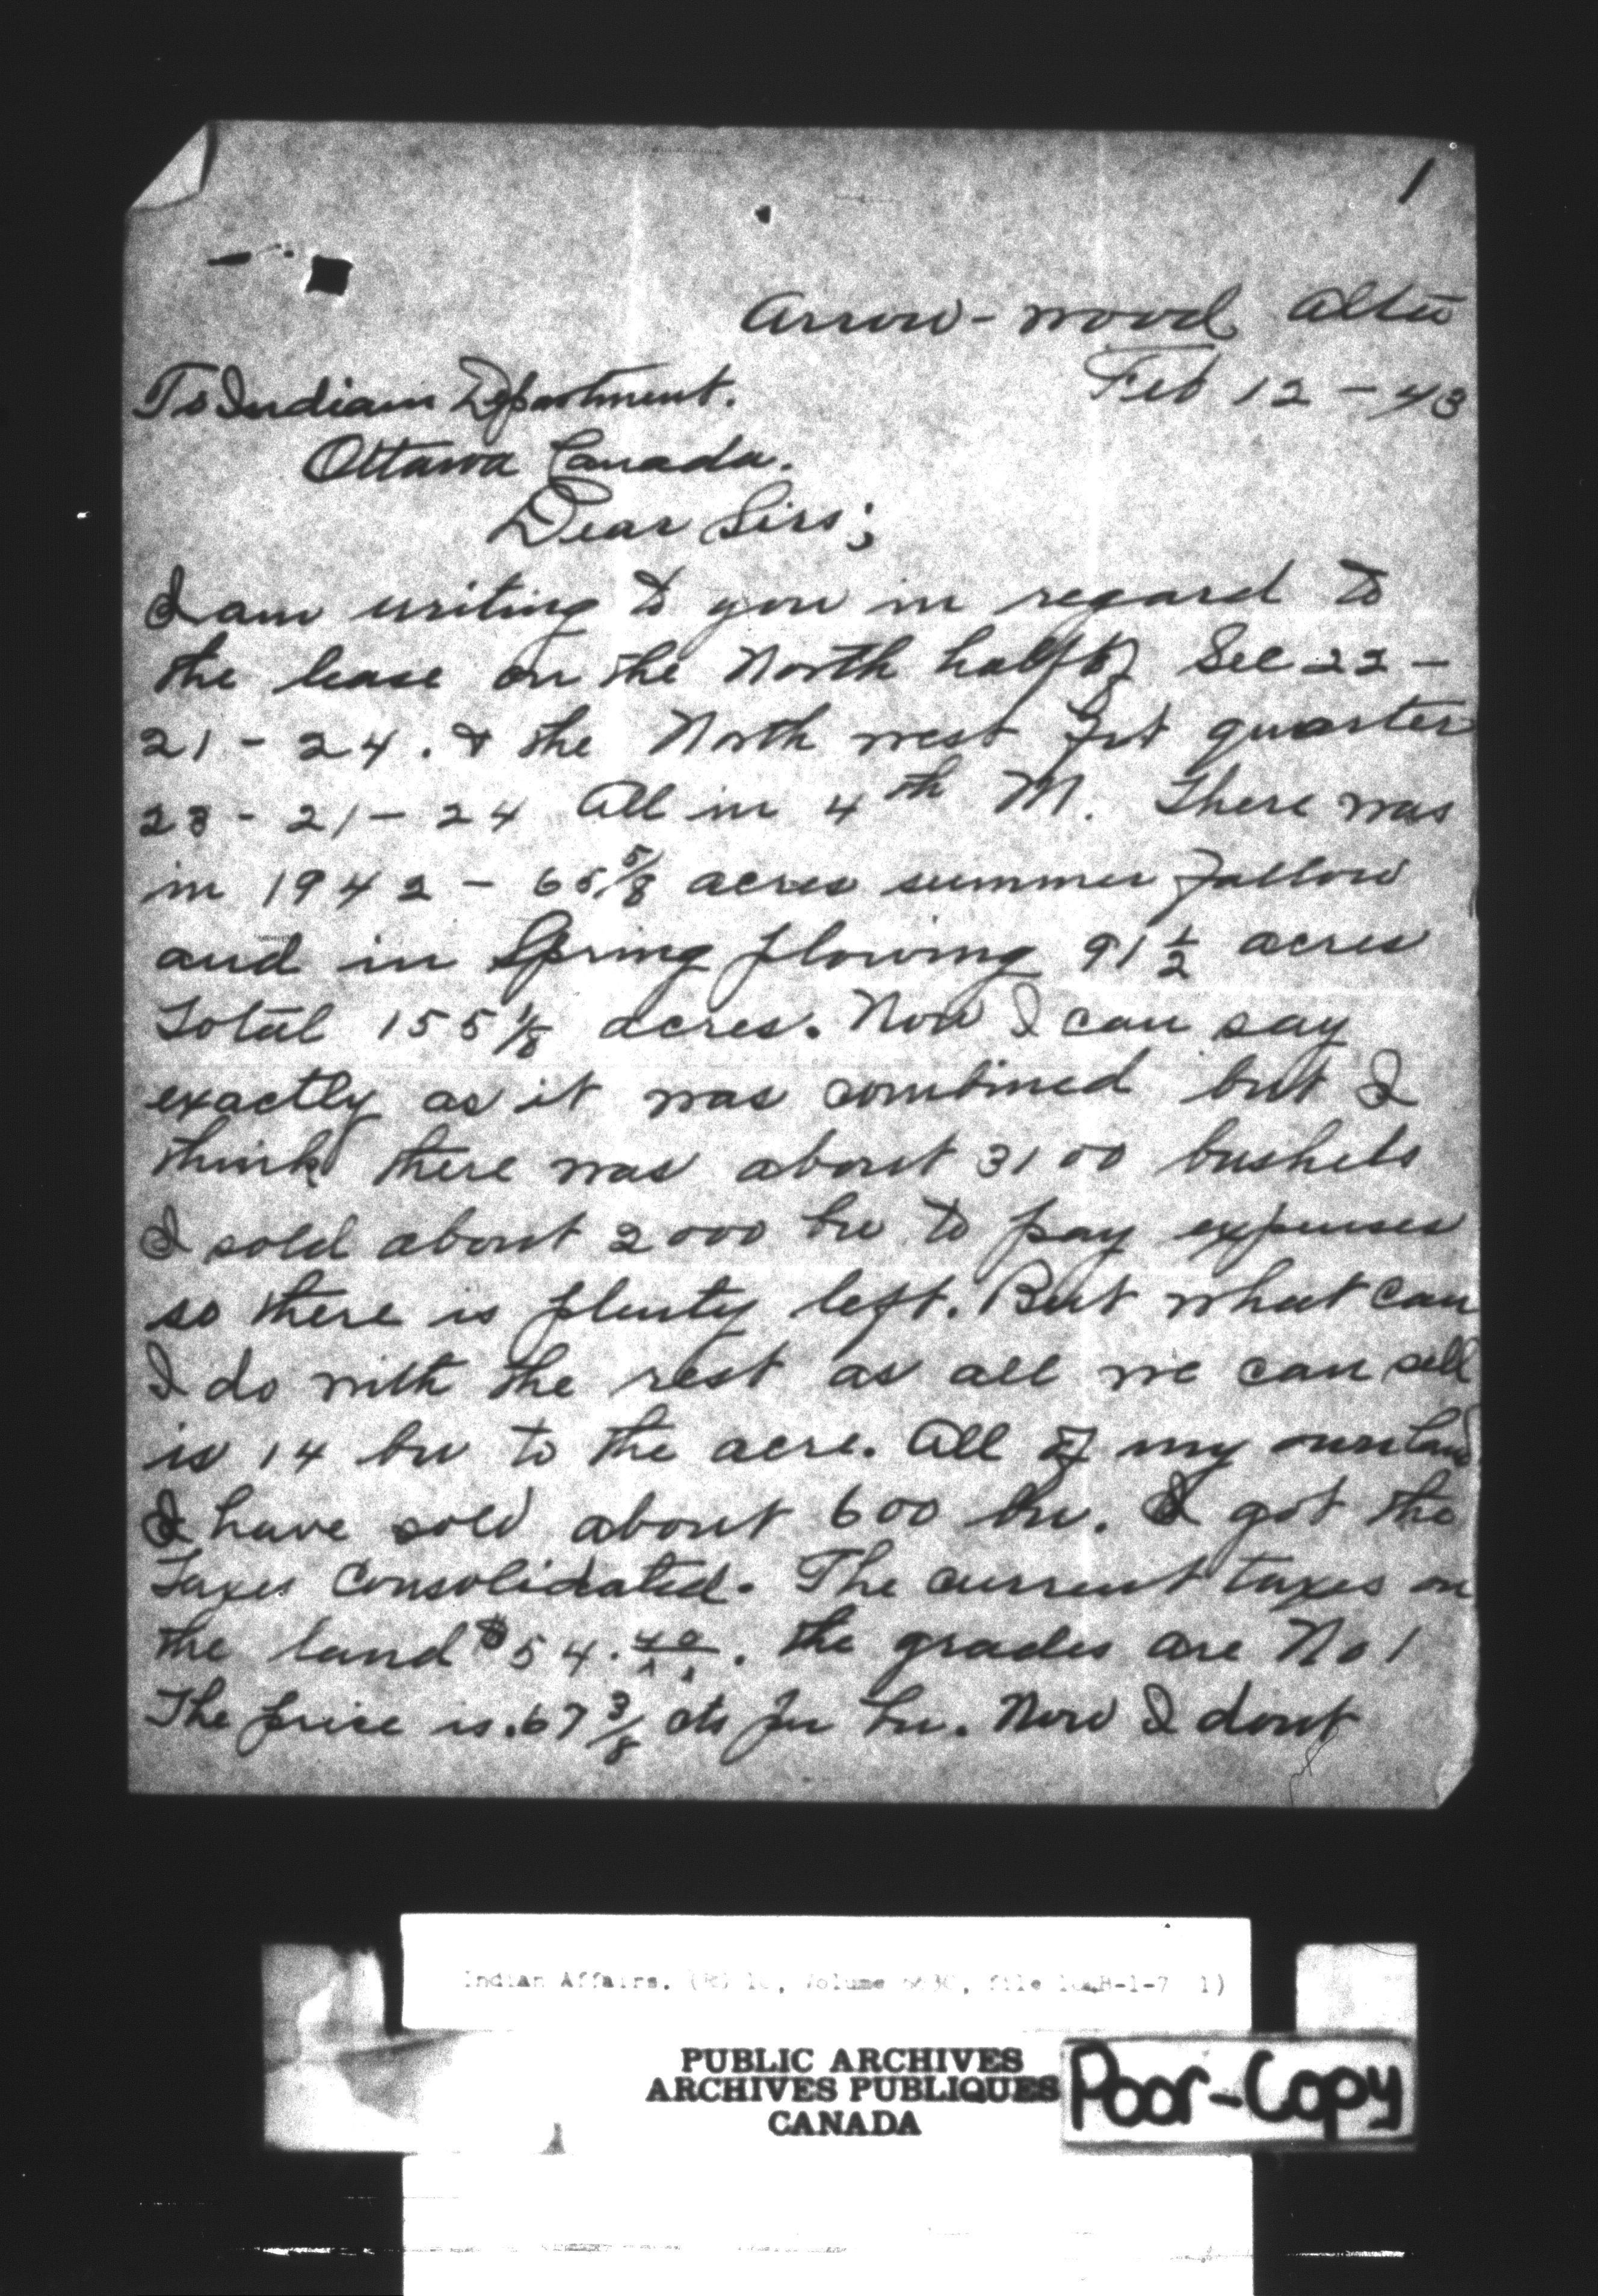 1
Arrow-wood Alta
Feb 12 - 43
To Indian Department.
Ottawa Canada.
Dear Sirs;
I am writing to you in regard to
the lease on the North half of Sec 22 -
21 - 24. & the North west frt quarter
23 - 21 - 24 All in 4th M. There was
in 1942 - 65 5/8 acres summer fallow
and in Spring plowing 91 1/2 acres
Total 155 1/8 acres. Now I can say
exactly as it was combined but I
think there was about 3100 bushels
I sold about 2000 bu to pay expenses
so there is plenty left. But what can
I do with the rest as all we can sell
is 14 bu to the acre. All of my own land
I have sold about 600 bu. I got the
Taxes Consolidated. The current taxes on
the land $54. the grades are No 1
The price is .67 3/8 cts per bu. Now I dont
Indian Affairs. (RG 10, Volume file 1)
PUBLIC ARCHIVES
ARCHIVES PUBLIQUES
CANADA
Poor-Copy